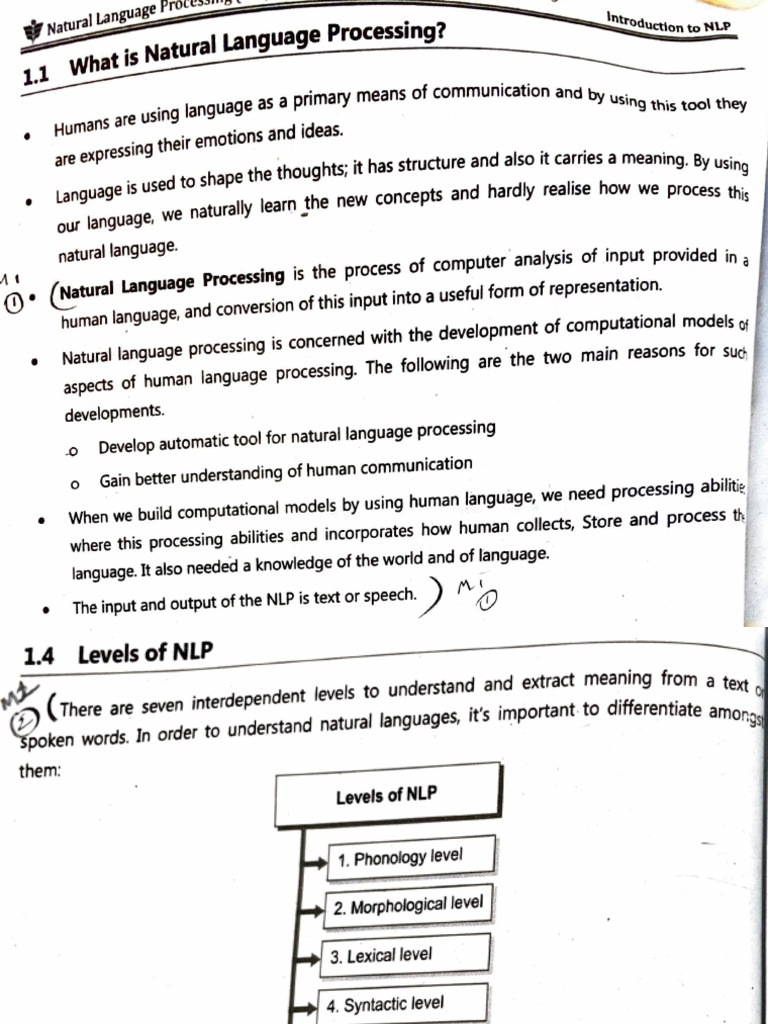 Natural Language Processing
Introduction to NLP
1.1 What is Natural Language Processing?
• Humans are using language as a primary means of communication and by using this tool they
are expressing their emotions and ideas.
• Language is used to shape the thoughts; it has structure and also it carries a meaning. By using
our language, we naturally learn the new concepts and hardly realise how we process this
natural language.
M1
① • (Natural Language Processing is the process of computer analysis of input provided in a
human language, and conversion of this input into a useful form of representation.
• Natural language processing is concerned with the development of computational models of
aspects of human language processing. The following are the two main reasons for such
developments.
o Develop automatic tool for natural language processing
o Gain better understanding of human communication
• When we build computational models by using human language, we need processing abilitie
where this processing abilities and incorporates how human collects, Store and process th
language. It also needed a knowledge of the world and of language.
• The input and output of the NLP is text or speech. ) M1
①
1.4 Levels of NLP
M1
② (There are seven interdependent levels to understand and extract meaning from a text or
spoken words. In order to understand natural languages, it's important to differentiate amongst
them:
Levels of NLP
1. Phonology level
2. Morphological level
3. Lexical level
4. Syntactic level